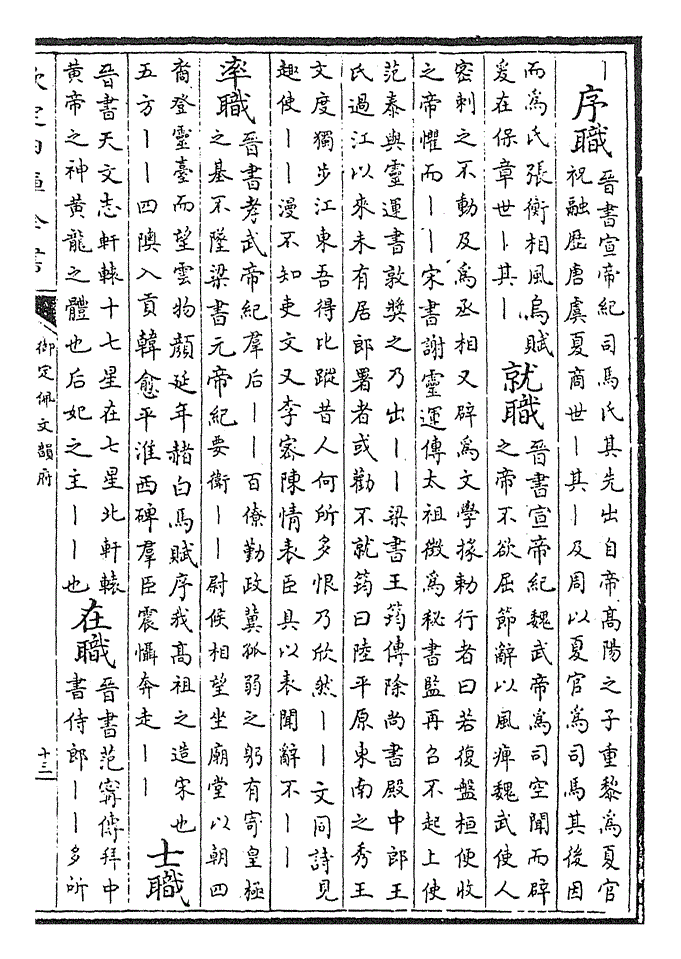 ｜
序職
晉書宣帝紀司馬氏其先出自帝高陽之子重黎為夏官
祝融歷唐虞夏商世｜其｜及周以夏官為司馬其後因
而為氏張衡相風烏賦
爰在保章世｜其｜
就職
晉書宣帝紀魏武帝為司空聞而辟
之帝不欲屈節辭以風痺魏武使人
密刺之不動及為丞相又辟為文學掾勅行者曰若復盤桓便收
之帝懼而｜｜宋書謝靈運傳太祖徵為秘書監再召不起上使
范泰與靈運書敦奬之乃出｜｜梁書王筠傳除尚書殿中郎王
氏過江以來未有居郎署者或勸不就筠曰陸平原東南之秀王
文度獨步江東吾得比蹤昔人何所多恨乃欣然｜｜文同詩見
趣使｜｜漫不知吏文又李密陳情表臣具以表聞辭不｜｜
率職
晉書孝武帝紀羣后｜｜百僚勤政冀孤弱之躬有寄皇極
之基不墜梁書元帝紀要衛｜｜尉候相望坐廟堂以朝四
裔登靈臺而望雲物顏延年赭白馬賦序我高祖之造宋也
五方｜｜四隩入貢韓愈平淮西碑羣臣震懾奔走｜｜
士職
晉書天文志軒轅十七星在七星北軒轅
黃帝之神黃龍之體也后妃之主｜｜也
在職
晉書范甯傳拜中
書侍郎｜｜多所
欽定四庫全書
御定佩文韻府
十三